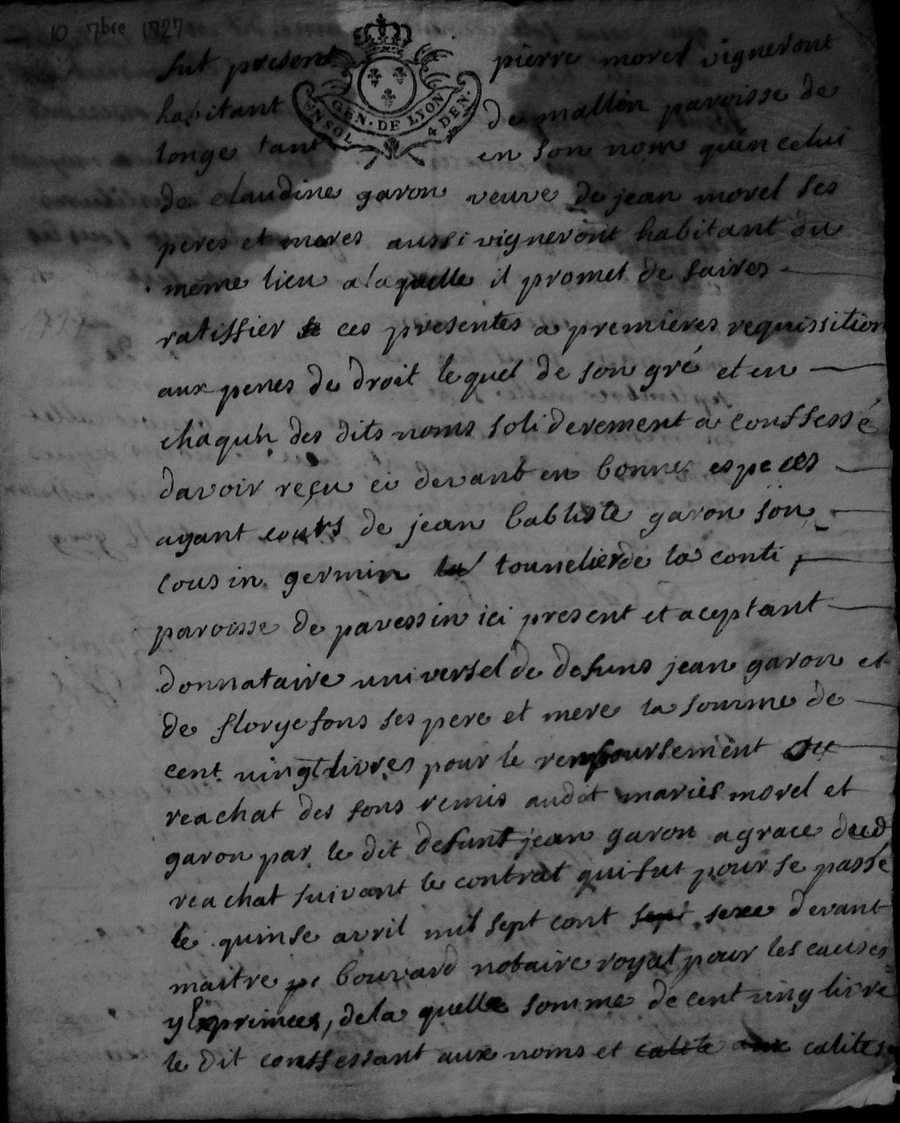 10 7bre 1727
GEN. DE LYON
UN SOL 4 DEN.
fut present pierre morel vigneront
habitant de mallin paroisse de
longe tant en son nom quen celui
de claudine garon veuve de jean morel ses
peres et meres aussi vigneront habitant du
meme lieu a laquelle il promet de faires
ratiffier ces presentes a premieres requissition
aux penes de droit lequel de son gré et en
chaqun des dits noms soliderement a conffessé
davoir reçu ci devant en bonnes especes
ayant cours de jean babtiste garon son
cousin germin tounelier de la conti
paroisse de pavessin ici present et aceptant
donnataire universel de defuns jean garon et
de florye fons ses pere et mere la somme de
cent vingt livres pour le remboursement ou
reachat des fons remis audit mariés morel et
garon par le dit defunt jean garon a grace dud
reachat suivant le contrat qui fut pour se passé
le quinse avril mil sept cent sept sexe devant
maitre bouvard notaire royal pour les causes
y exprimees, de la quelle somme de cent ving livre
le dit conffessant aux noms et calite aux calites